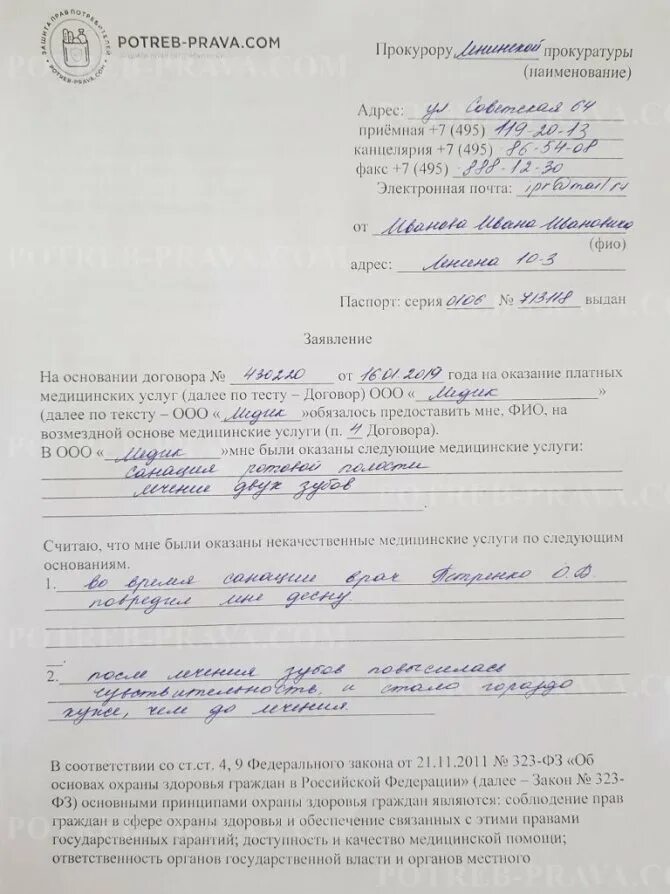 ЗАЩИТА ПРАВ ПОТРЕБИТЕЛЕЙ
POTREB-PRAVA.COM
POTREB-PRAVA.COM
Прокурору Ленинской прокуратуры
(наименование)
Адрес: ул Советская 64
приёмная +7 (495) 119-20-13
канцелярия +7 (495) 86-54-08
факс +7 (495) 888-12-30
Электронная почта: ipr@mail.ru
от Иванова Ивана Ивановича
(фио)
адрес: Ленина 10-3
Паспорт: серия 0106 № 713118 выдан
Заявление
На основании договора № 430220 от 16.01.2019 года на оказание платных
медицинских услуг (далее по тесту – Договор) ООО « Медик »
(далее по тексту – ООО « Медик »обязалось предоставить мне, ФИО, на
возмездной основе медицинские услуги (п. 4 Договора).
В ООО « Медик »мне были оказаны следующие медицинские услуги:
санация ротовой полости
лечение двух зубов
Считаю, что мне были оказаны некачественные медицинские услуги по следующим
основаниям.
1. во время санации врач Петренко О.В.
повредил мне десну.
2. после лечения зубов повысилась
чувствительность и стало гораздо
хуже, чем до лечения.
В соответствии со ст.ст. 4, 9 Федерального закона от 21.11.2011 № 323-ФЗ «Об
основах охраны здоровья граждан в Российской Федерации» (далее – Закон № 323-
ФЗ) основными принципами охраны здоровья граждан являются: соблюдение прав
граждан в сфере охраны здоровья и обеспечение связанных с этими правами
государственных гарантий; доступность и качество медицинской помощи;
ответственность органов государственной власти и органов местного